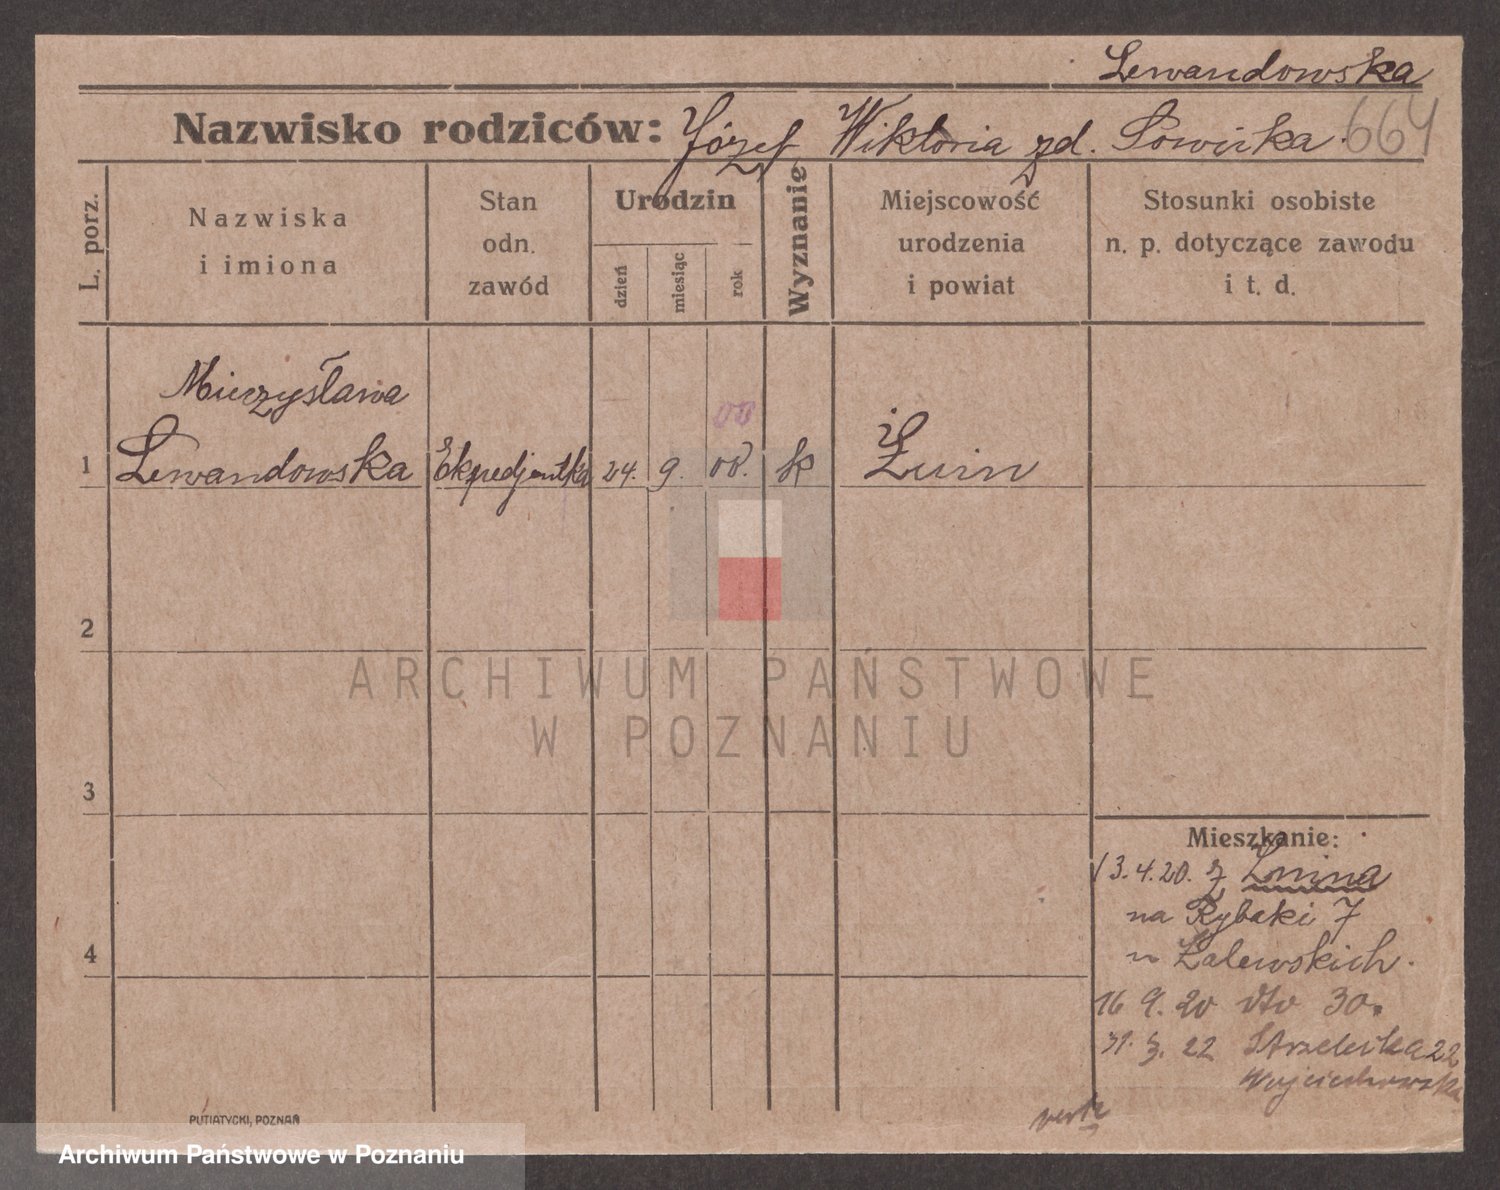 Lewandowska
Nazwisko rodziców: Józef Wiktoria zd. Sowińska 664
L. porz.
Nazwiska
i imiona
Stan
odn.
zawód
Urodzin
dzień
miesiąc
rok
Wyznanie
Miejscowość
urodzenia
i powiat
Stosunki osobiste
n. p. dotyczące zawodu
i t. d.
Mieczysława
00
1 Lewandowska Ekspedjentka 24. 9. 00. k Żnin
2
ARCHIWUM PAŃSTWOWE
W POZNANIU
3
Mieszkanie:
13.4.20. z Żnina
na Rybaki 7
4
u Zalewskich.
16 9. 20 dto 30.
31. 3. 22 Strzelecka 22
Wojciechowska
verte
PUTIATYCKI, POZNAŃ
Archiwum Państwowe w Poznaniu